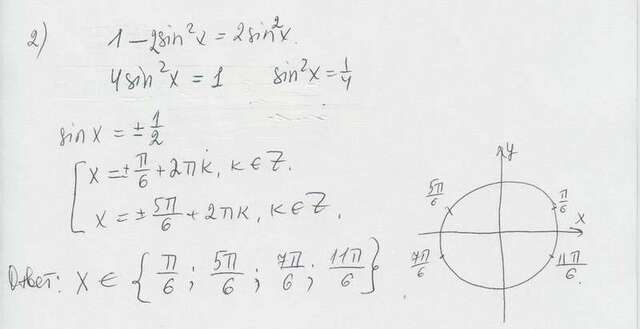 2) 1 - 2sin²x = 2sin²x.
4sin²x = 1 sin²x = 1/4
sin x = ± 1/2
[ x = ± π/6 + 2πk, k ∈ Z.
x = ± 5π/6 + 2πk, k ∈ Z.
Ответ: x ∈ { π/6 ; 5π/6 ; 7π/6 ; 11π/6 }.
y
5π/6 π/6
x
7π/6 11π/6